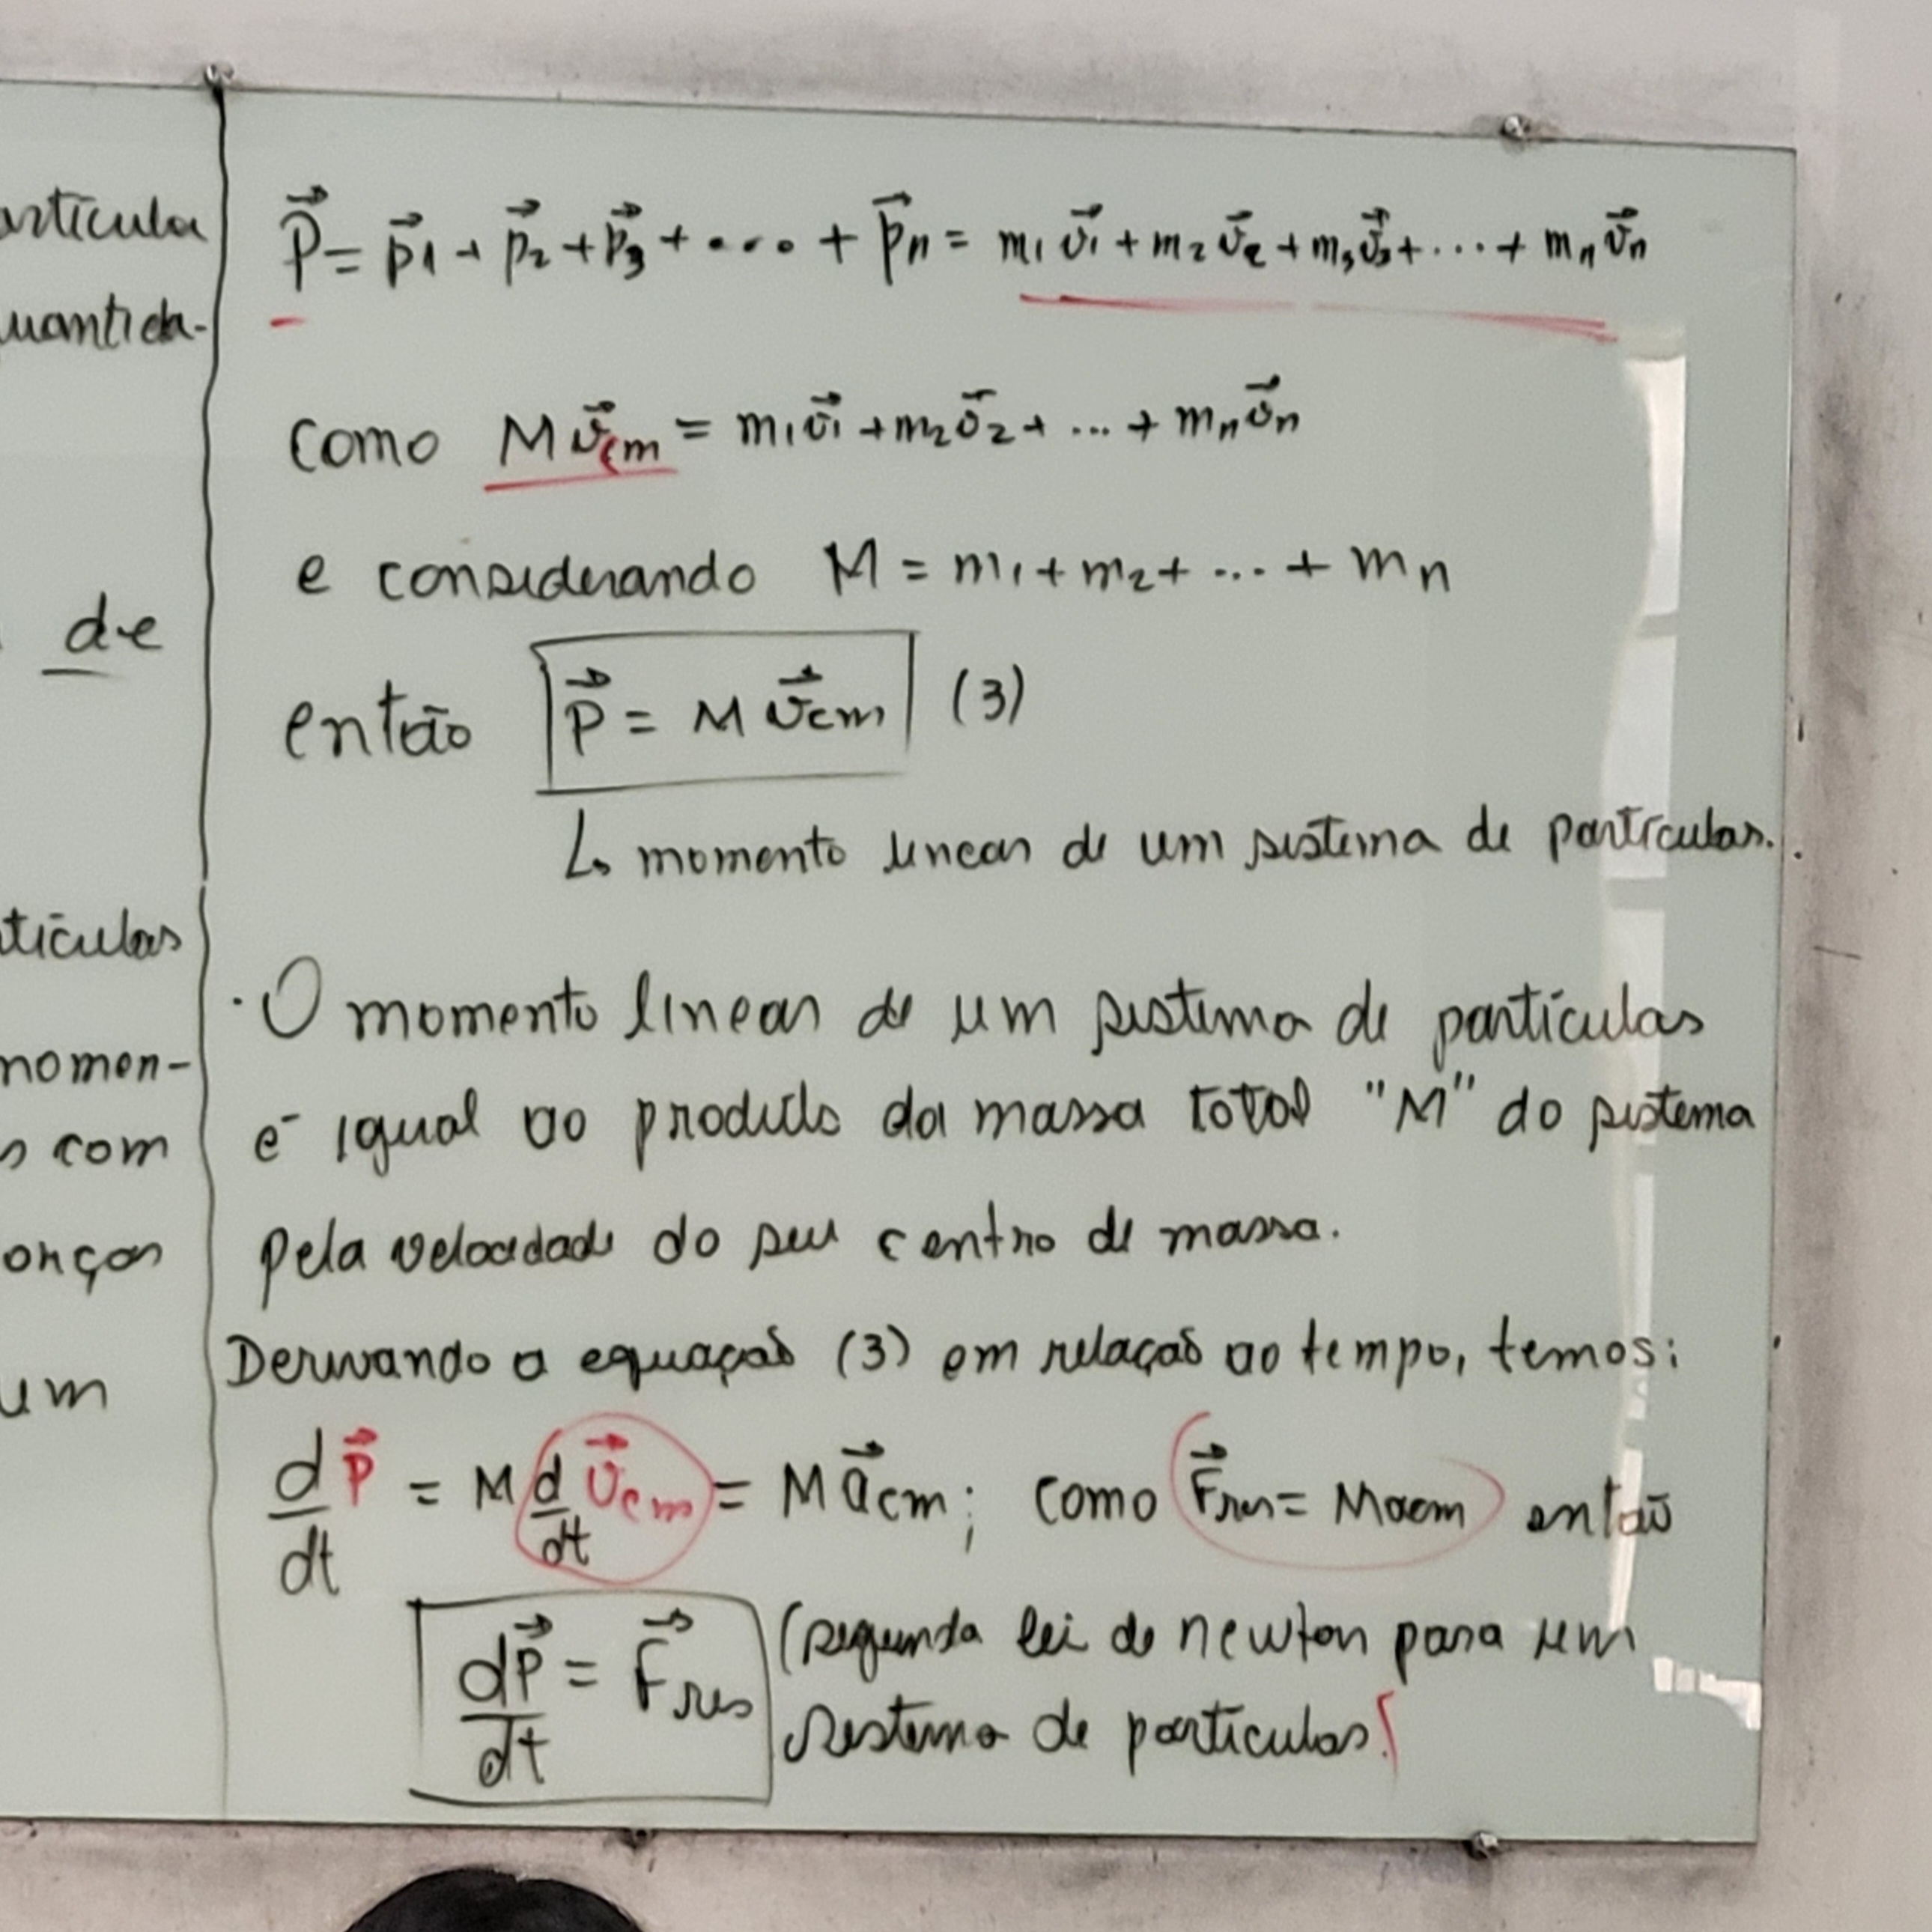 articula
uantida-
de
tículas
momen-
s com
onços
um
P⃗ = p⃗1 + p⃗2 + p⃗3 + .... + p⃗n = m1 v⃗1 + m2 v⃗2 + m3 v⃗3 + ... + mn v⃗n
como M v⃗cm = m1 v⃗1 + m2 v⃗2 + ... + mn v⃗n
e considerando M = m1 + m2 + ... + mn
então P⃗ = M v⃗cm (3)
↳ momento linear de um sistema de partículas.
· O momento linear de um sistema de partículas
é igual ao produto da massa total "M" do sistema
pela velocidade do seu centro de massa.
Derivando a equação (3) em relação ao tempo, temos:
d/dt P⃗ = M d/dt v⃗cm = M a⃗cm; como F⃗res = Macm então
dP⃗/dt = F⃗res (segunda lei de newton para um
sistema de partículas)